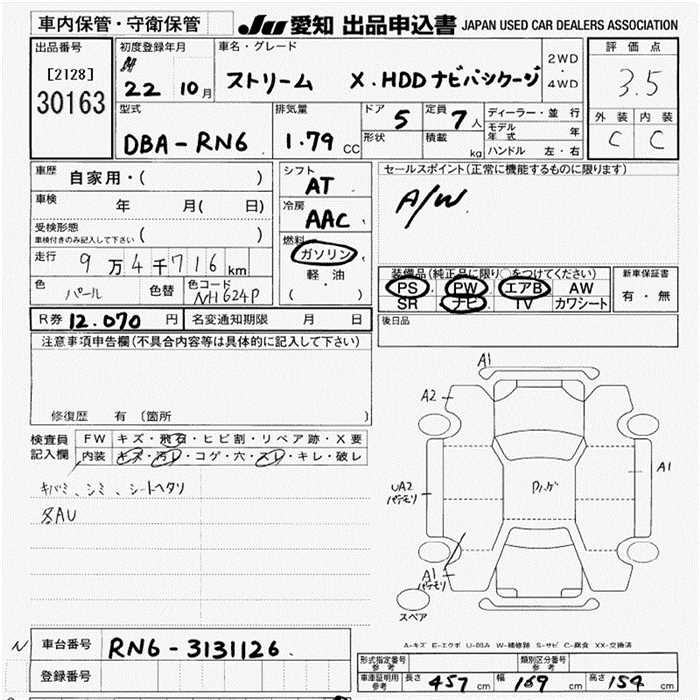 車内保管・守衛保管
JU 愛知 出品申込書 JAPAN USED CAR DEALERS ASSOCIATION
出品番号
[2128]
30163
初度登録年月
22 10月
車名・グレード
ストリーム X.HDDナビパッケージ
2WD
・
4WD
評価点
3.5
外装 内装
C C
型式
DBA-RN6
排気量
1.79 CC
ドア 5
形状
定員 7人
積載 kg
ディーラー・並行
モデル年式 年
ハンドル 左・右
車歴 自家用・( )
車検 年 月( 日)
受検形態
車検付きのみ記入して下さい ( )
走行 9万4千716km
色 パール 色替 色コード NH624P
シフト
AT
冷房
AAC
燃料
ガソリン
軽・油
( )
セールスポイント(正常に機能するものに限ります)
A/W
装備品(純正品に限り○をつけてください)
PS PW エアB AW
SR ナビ TV カワシート
新車保証書
有・無
R券 12.070 円 名変通知期限 月 日
後日品
注意事項申告欄(不具合内容等は具体的に記入して下さい)
修復歴 有 (箇所
検査員
記入欄
FW キズ・飛石・ヒビ割・リペア跡・X要
内装 キズ・汚レ・コゲ・穴・スレ・キレ・破レ
キバミ、シミ、シートヘタリ
各AU
A1
A2
A1
UA2
A1
スペア
A-キズ E-エクボ U-凹み W-補修跡 S-サビ C-腐食 XX-交換済
N 車台番号 RN6-3131126
登録番号
形式指定番号
参考
類別区分番号
参考
車庫証明用
参考
長さ 457 cm 幅 169 cm 高さ 154 cm